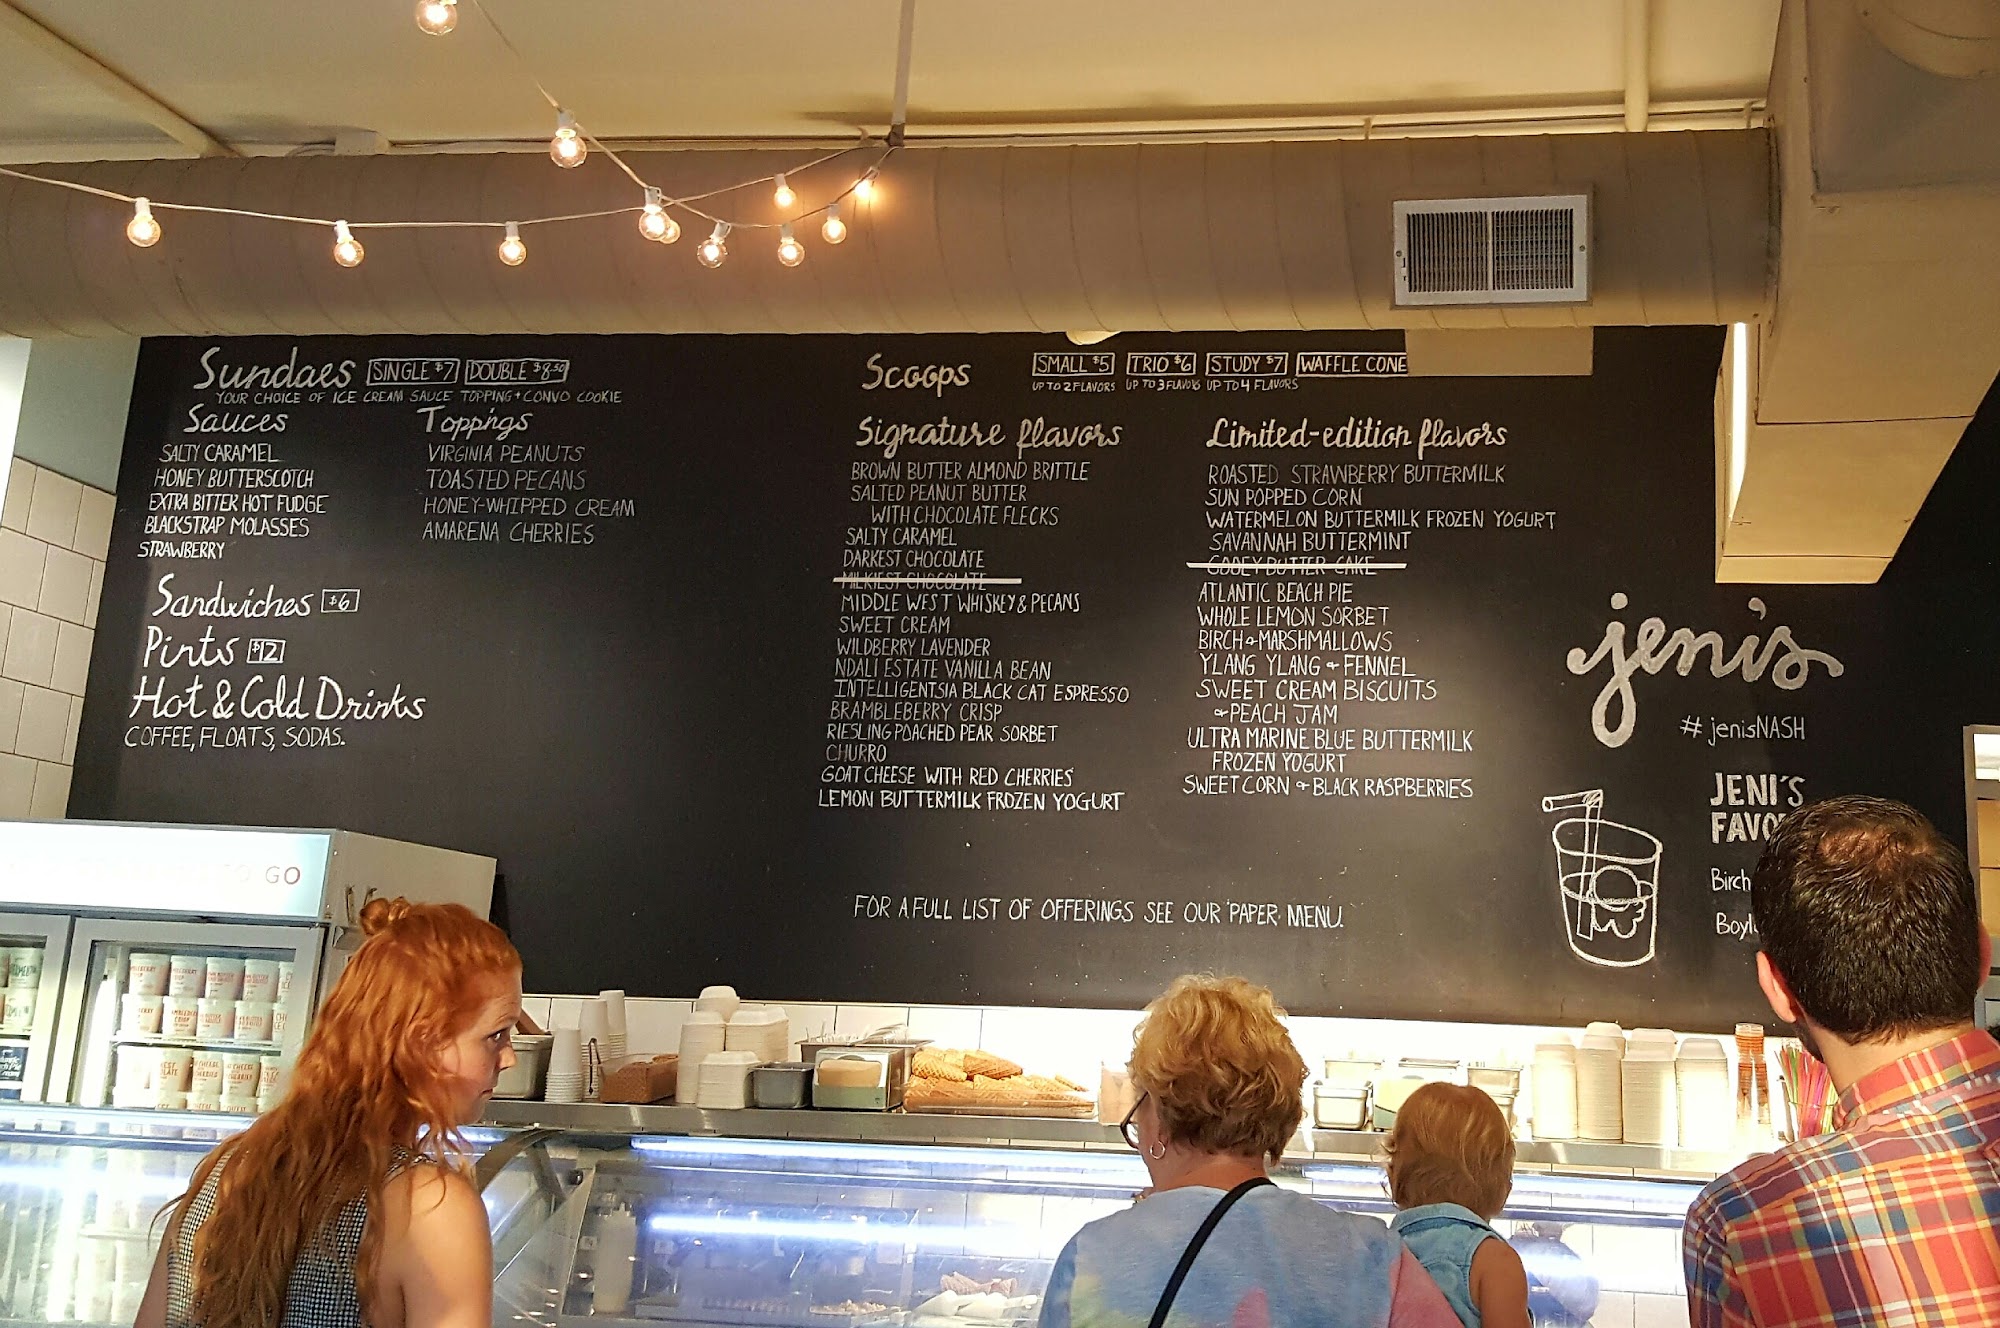 Sundaes SINGLE $7 DOUBLE $8.50
YOUR CHOICE OF ICE CREAM SAUCE TOPPING + CONVO COOKIE
Sauces
SALTY CARAMEL
HONEY BUTTERSCOTCH
EXTRA BITTER HOT FUDGE
BLACKSTRAP MOLASSES
STRAWBERRY
Toppings
VIRGINIA PEANUTS
TOASTED PECANS
HONEY-WHIPPED CREAM
AMARENA CHERRIES
Sandwiches $6
Pints $12
Hot & Cold Drinks
COFFEE, FLOATS, SODAS.
Scoops SMALL $5 TRIO $6 STUDY $7 WAFFLE CONE
UP TO 2 FLAVORS UP TO 3 FLAVORS UP TO 4 FLAVORS
Signature flavors
BROWN BUTTER ALMOND BRITTLE
SALTED PEANUT BUTTER
WITH CHOCOLATE FLECKS
SALTY CARAMEL
DARKEST CHOCOLATE
MILKIEST CHOCOLATE
MIDDLE WEST WHISKEY & PECANS
SWEET CREAM
WILDBERRY LAVENDER
NDALI ESTATE VANILLA BEAN
INTELLIGENTSIA BLACK CAT ESPRESSO
BRAMBLEBERRY CRISP
RIESLING POACHED PEAR SORBET
CHURRO
GOAT CHEESE WITH RED CHERRIES
LEMON BUTTERMILK FROZEN YOGURT
Limited-edition flavors
ROASTED STRAWBERRY BUTTERMILK
SUN POPPED CORN
WATERMELON BUTTERMILK FROZEN YOGURT
SAVANNAH BUTTERMINT
GOOEY BUTTER CAKE
ATLANTIC BEACH PIE
WHOLE LEMON SORBET
BIRCH + MARSHMALLOWS
YLANG YLANG + FENNEL
SWEET CREAM BISCUITS
+ PEACH JAM
ULTRA MARINE BLUE BUTTERMILK
FROZEN YOGURT
SWEET CORN + BLACK RASPBERRIES
FOR A FULL LIST OF OFFERINGS SEE OUR PAPER MENU.
jeni's
# jenisNASH
JENI'S
FAVO
Birch
Boyl
TO GO